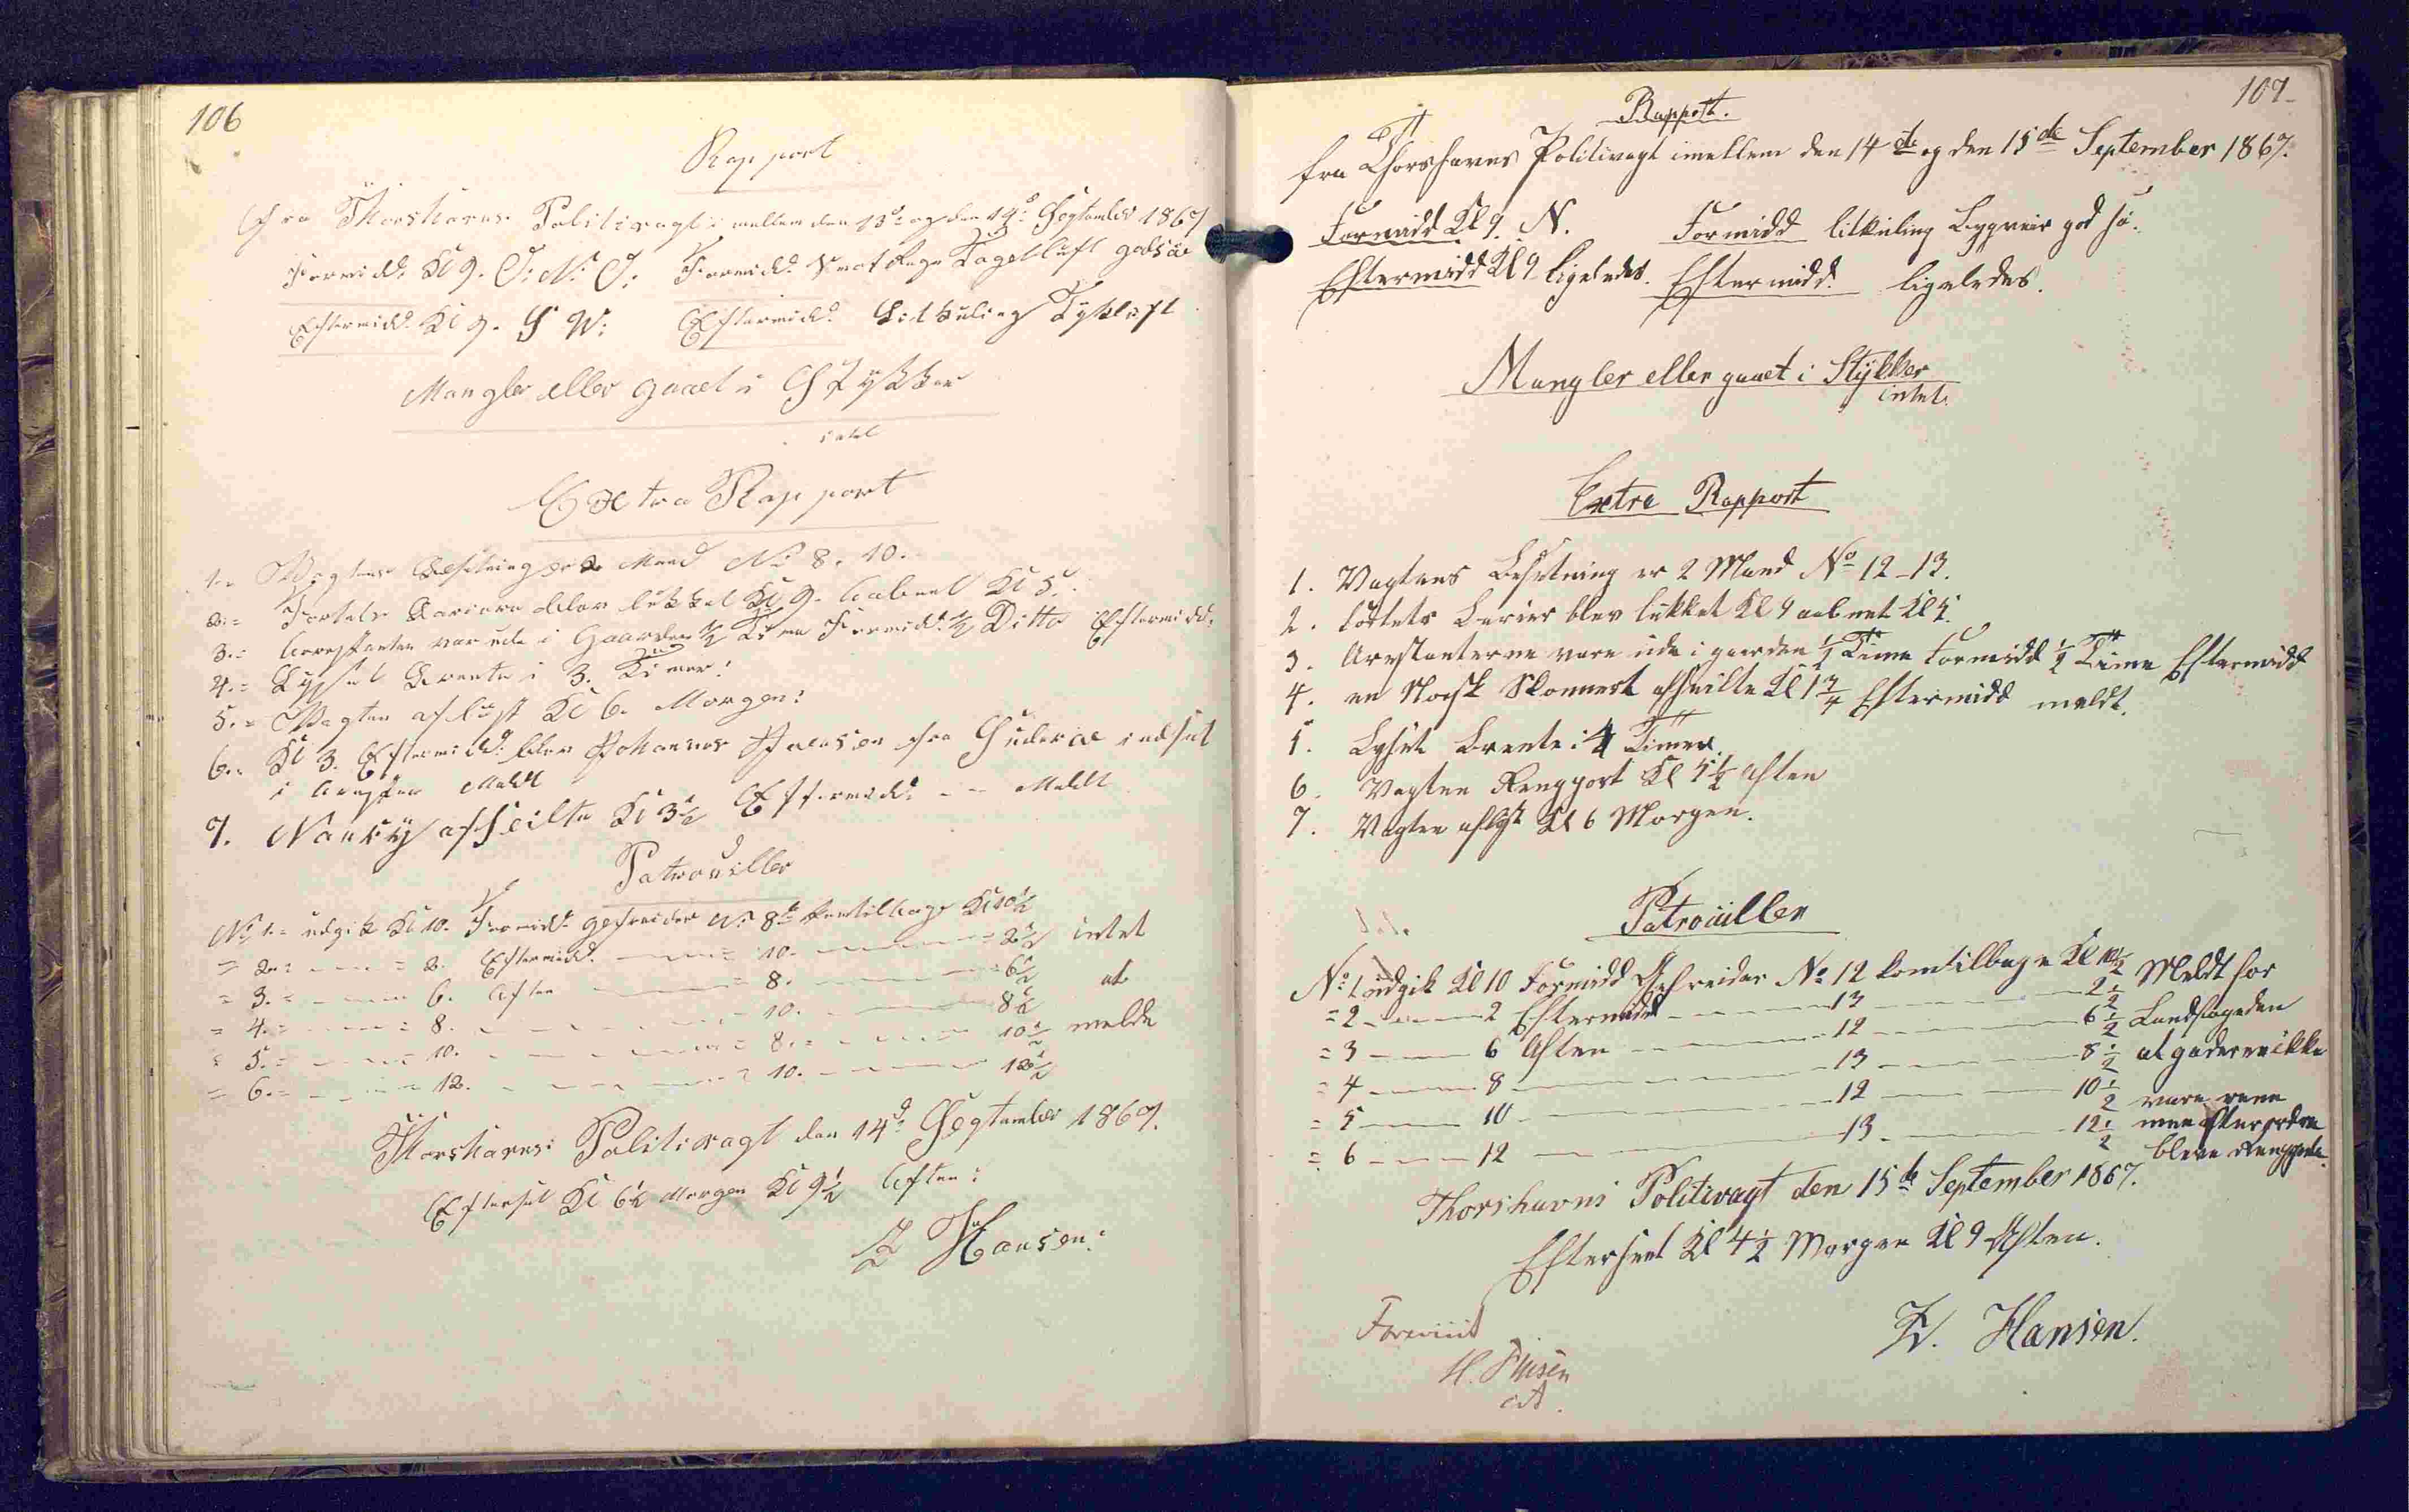 106
Rapport
fra Thorshavns Politivagt i mellem den 13d: og den 14d: September 1867
Formidd: Kl 9. O: N: O: Formidd: Tagetluft godsøe
Eftermidd: Kl 9. S W: Eftermidd: Litkuling Tykluft
Mangler eller gaaet i Stykker
intet
Extra Rapport
1.= Vagtens Besetning er 2 Mand No 8. 10.
2.= Fortets Bariere blev lukket Kl 9. aabnet Kl 5.
3.= Arrestanten var ude i Gaarden 1/2 Time Formidd: 1/2 Ditto Eftermidd:
4.= Lyset Brente i 3. Timer:
5.= Vagten aflöst Kl 6. Morgen:
6.= Kl 3. Eftermidd: blev Johannes Joensen fra Suderöe indsat
i Aresten Meldt
7. Nancy afseilte Kl 3 1/2 Eftermidd: - - Meldt
Patrouiller
No 1.= udgik Kl 10. Formidd: gefreider No 8 komtilbage Kl 10 1/2
= 2.= - - = 2. Eftermidd: - - = 10. - - - 2 1/2 intet
= 3.= - - 6. Aften - - = 8. - - - 6 1/2
= 4.= - - = 8. - - - 10. - - - 8 1/2 at
= 5.= - - = 10. - - - = 8. = - - - 10 1/2 melde
= 6.= - - = 12. - - - = 10. - - - 12 1/2
Thorshavns Politivagt den 14d: September 1867.
Efterset Kl 6 1/2 Morgen Kl 9 1/2 Aften:
Z Hansen:
107
Rapport.
fra Thorshavns Politivagt imellem den 14de og den 15de September 1867.
Formidd Kl 9. N. Formidd litkuling Bygveir god sö.
Eftermidd Kl 9 ligeledes. Eftermidd ligeledes.
Mangler eller gaaet i Stykker
intet.
Extra Rapport
1. Vagtens Besetning er 2 Mand No 12 - 13.
2. fortets Barier blev lukket Kl 9 aabnet Kl 5.
3. Arestanterne vare ude i gaarden 1/2 Time Formidd 1/2 Time Eftermidd
4. en Norsk Skonnert afseilte Kl 1 3/4 Eftermidd meldt.
5. Lyset Brente i 4 Timer.
6. Vagten Rengjort Kl 5 1/2 Aften
7. Vagten aflöst Kl 6 Morgen.
Patrouiller
No 1 udgik Kl 10 Formidd Gefreider No 12 komtilbage Kl 10 1/2 Meldt for
= 2 - - - 2 Eftermidd - - - 13 - - - 2 1/2 Landfogeden
= 3 - - - 6 Aften - - - 12 - - - 6 1/2 at gaderne ikke
= 4 - - - 8 - - - 13 - - - 8 1/2 vare rene
= 5 - - - 10 - - - 12 - - - 10 1/2 men efter ordre
= 6 - - - 12 - - - 13 - - - 12 1/2 bleve Rengjorte.
Thorshavns Politivagt den 15de September 1867.
Efterseet Kl 4 1/2 Morgen Kl 9 Aften.
Z. Hansen.
Foreviist
H. Finsen